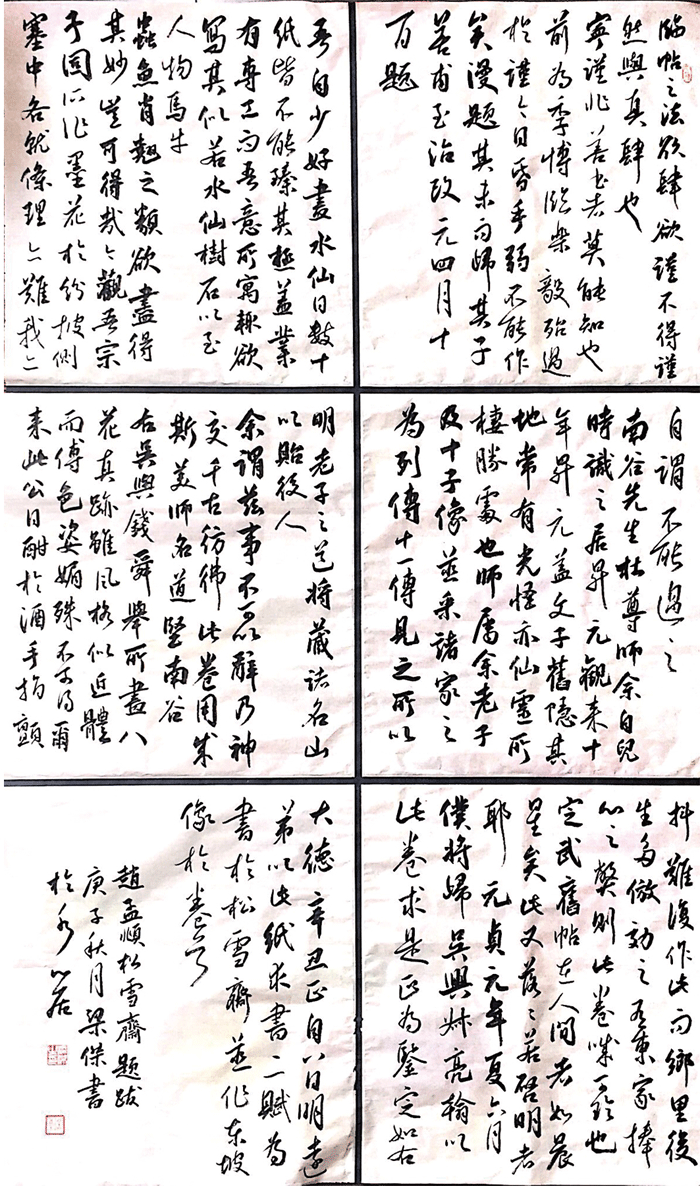 臨帖之法欲肆欲謹不得謹
然與真肆也
寧謹非善書者莫能知也
前為季博臨樂毅殆過
於謹今日昏手弱不能作
矣漫題其末而歸其子
善甫至治改元四月十
百題
吾自少好畫水仙日數十
紙皆不能臻其極蓋業
有專工而吾意所寓輒欲
寫其似若水仙樹石以至
人物馬牛
蟲魚肖翹之類欲盡得
其妙豈可得哉今觀吾宗
子固所作墨花於紛披側
塞中各就條理亦難哉亦
自謂不能過之
南谷先生杜尊師余自兒
時識之居昇元觀來十
年昇元蓋文子舊隱其
地常有光怪亦仙靈所
棲勝處也師屬余老子
及十子像並采諸家之
為列傳十一傳見之所以
明老子之道將藏諸名山
以貽後人
余謂茲事不可以辭乃神
交千古彷彿此卷用成
斯美師名道堅南谷
右吳興錢舜舉所畫八
花真跡雖風格似近體
而傅色姿媚殊不可得爾
來此公日酣於酒手指顫
抖難復作此而鄉里後
生多倣効之有東家捧
心之弊則此卷誠可珍也
定武舊帖在人間者如晨
星矣此又落落若啓明者
耶 元貞元年夏六月
僕將歸吳興叔亮翰以
此卷求是正為鑒定如右
大德辛丑正月八日明遠
弟以此紙求書二賦為
書於松雪齋並作東坡
像於卷首
趙孟頫松雪齋題跋
庚子秋月梁傑書